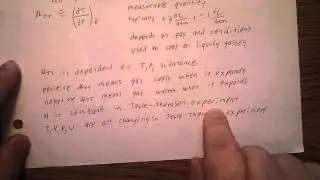 measurable quantity
μJT ≡ (∂T/∂P)H typically +3 °C/atm to -1 °C/atm
depends on gas and conditions
used to cool or liquify gasses
μJT is dependent on T, P, substance
positive μJT means gas cools when it expands
negative μJT means gas warms when it expands
H is constant in Joule-Thomson experiment
T, V, P, U are all changing in Joule-Thomson experiment